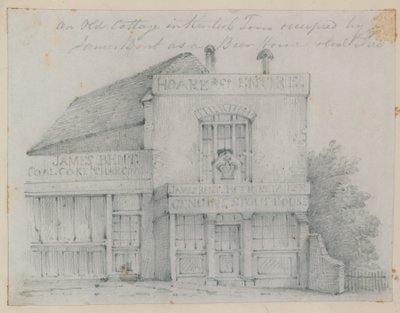 an Old Cottage in Kentish Town occupied by
James Bent as a Beer House
HOARE & Co ENTIRE
JAMES BENT
COAL COKE
JAMES BENT
GENUINE STOUT HOUSE